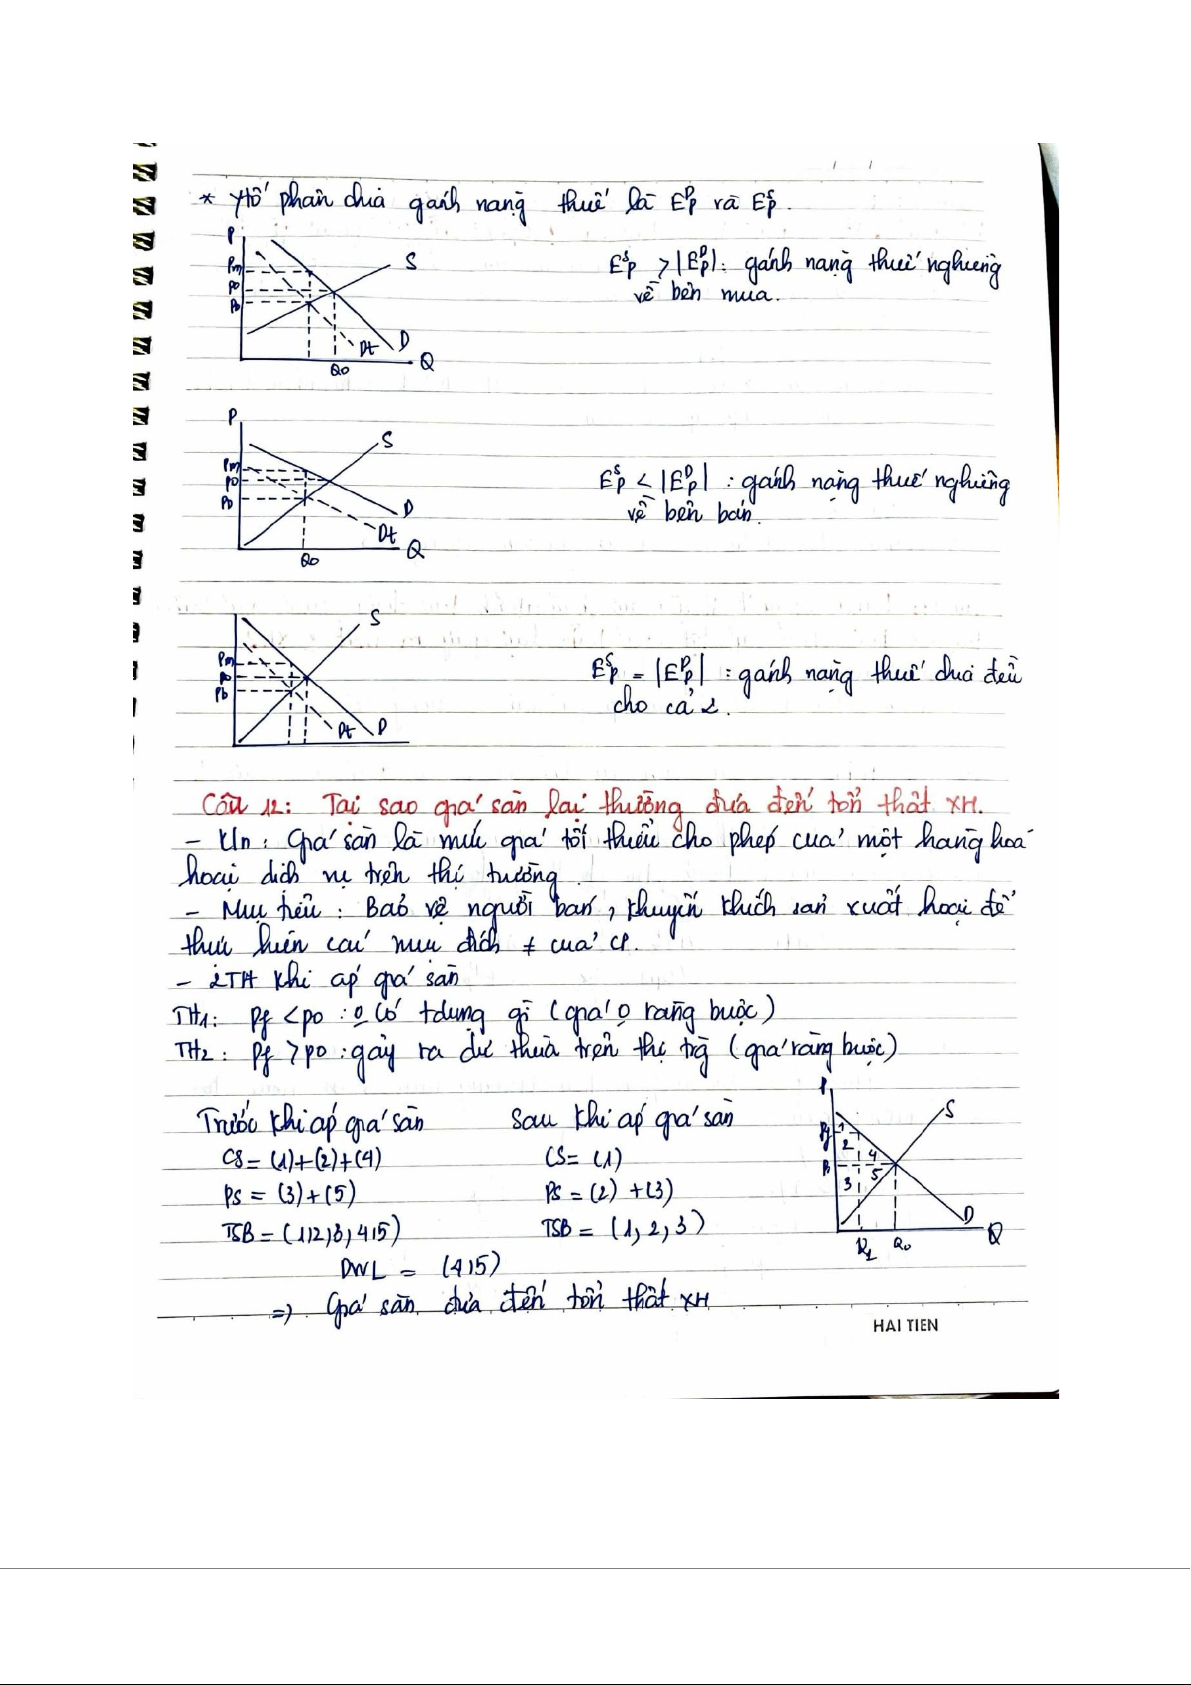 * Ytố phân chia gánh nặng thuế là E^D_P và E^S_P.
P
Pm
P0
Pb
S
D
Dt
Q0
Q
E^S_P > |E^D_P|: gánh nặng thuế nghiêng
về bên mua.
P
Pm
P0
Pb
S
D
Dt
Q0
Q
E^S_P < |E^D_P| : gánh nặng thuế nghiêng
về bên bán.
Pm
P0
Pb
S
Dt
D
E^S_P = |E^D_P| : gánh nặng thuế chia đều
cho cả 2.
Câu 12: Tại sao giá sàn lại thường đưa đến tổn thất XH.
- Kn: Giá sàn là mức giá tối thiểu cho phép của một hàng hoá
hoặc dịch vụ trên thị trường.
- Mục tiêu: Bảo vệ người bán, khuyến khích sản xuất hoặc để
thực hiện các mục đích ≠ của CP.
- 2TH khi áp giá sàn
TH1: Pf < P0 : o có tdụng gì (giá o ràng buộc)
TH2: Pf > P0 : gây ra dư thừa trên thị trg (giá ràng buộc)
Trước khi áp giá sàn
Sau khi áp giá sàn
CS = (1)+(2)+(4)
CS = (1)
PS = (3)+(5)
PS = (2)+(3)
TSB = (1,2,3,4,5)
TSB = (1,2,3)
DWL = (4,5)
=> Giá sàn đưa đến tổn thất XH
Pf
P0
1
2
3
4
5
S
D
Q1
Q0
Q
HAI TIEN